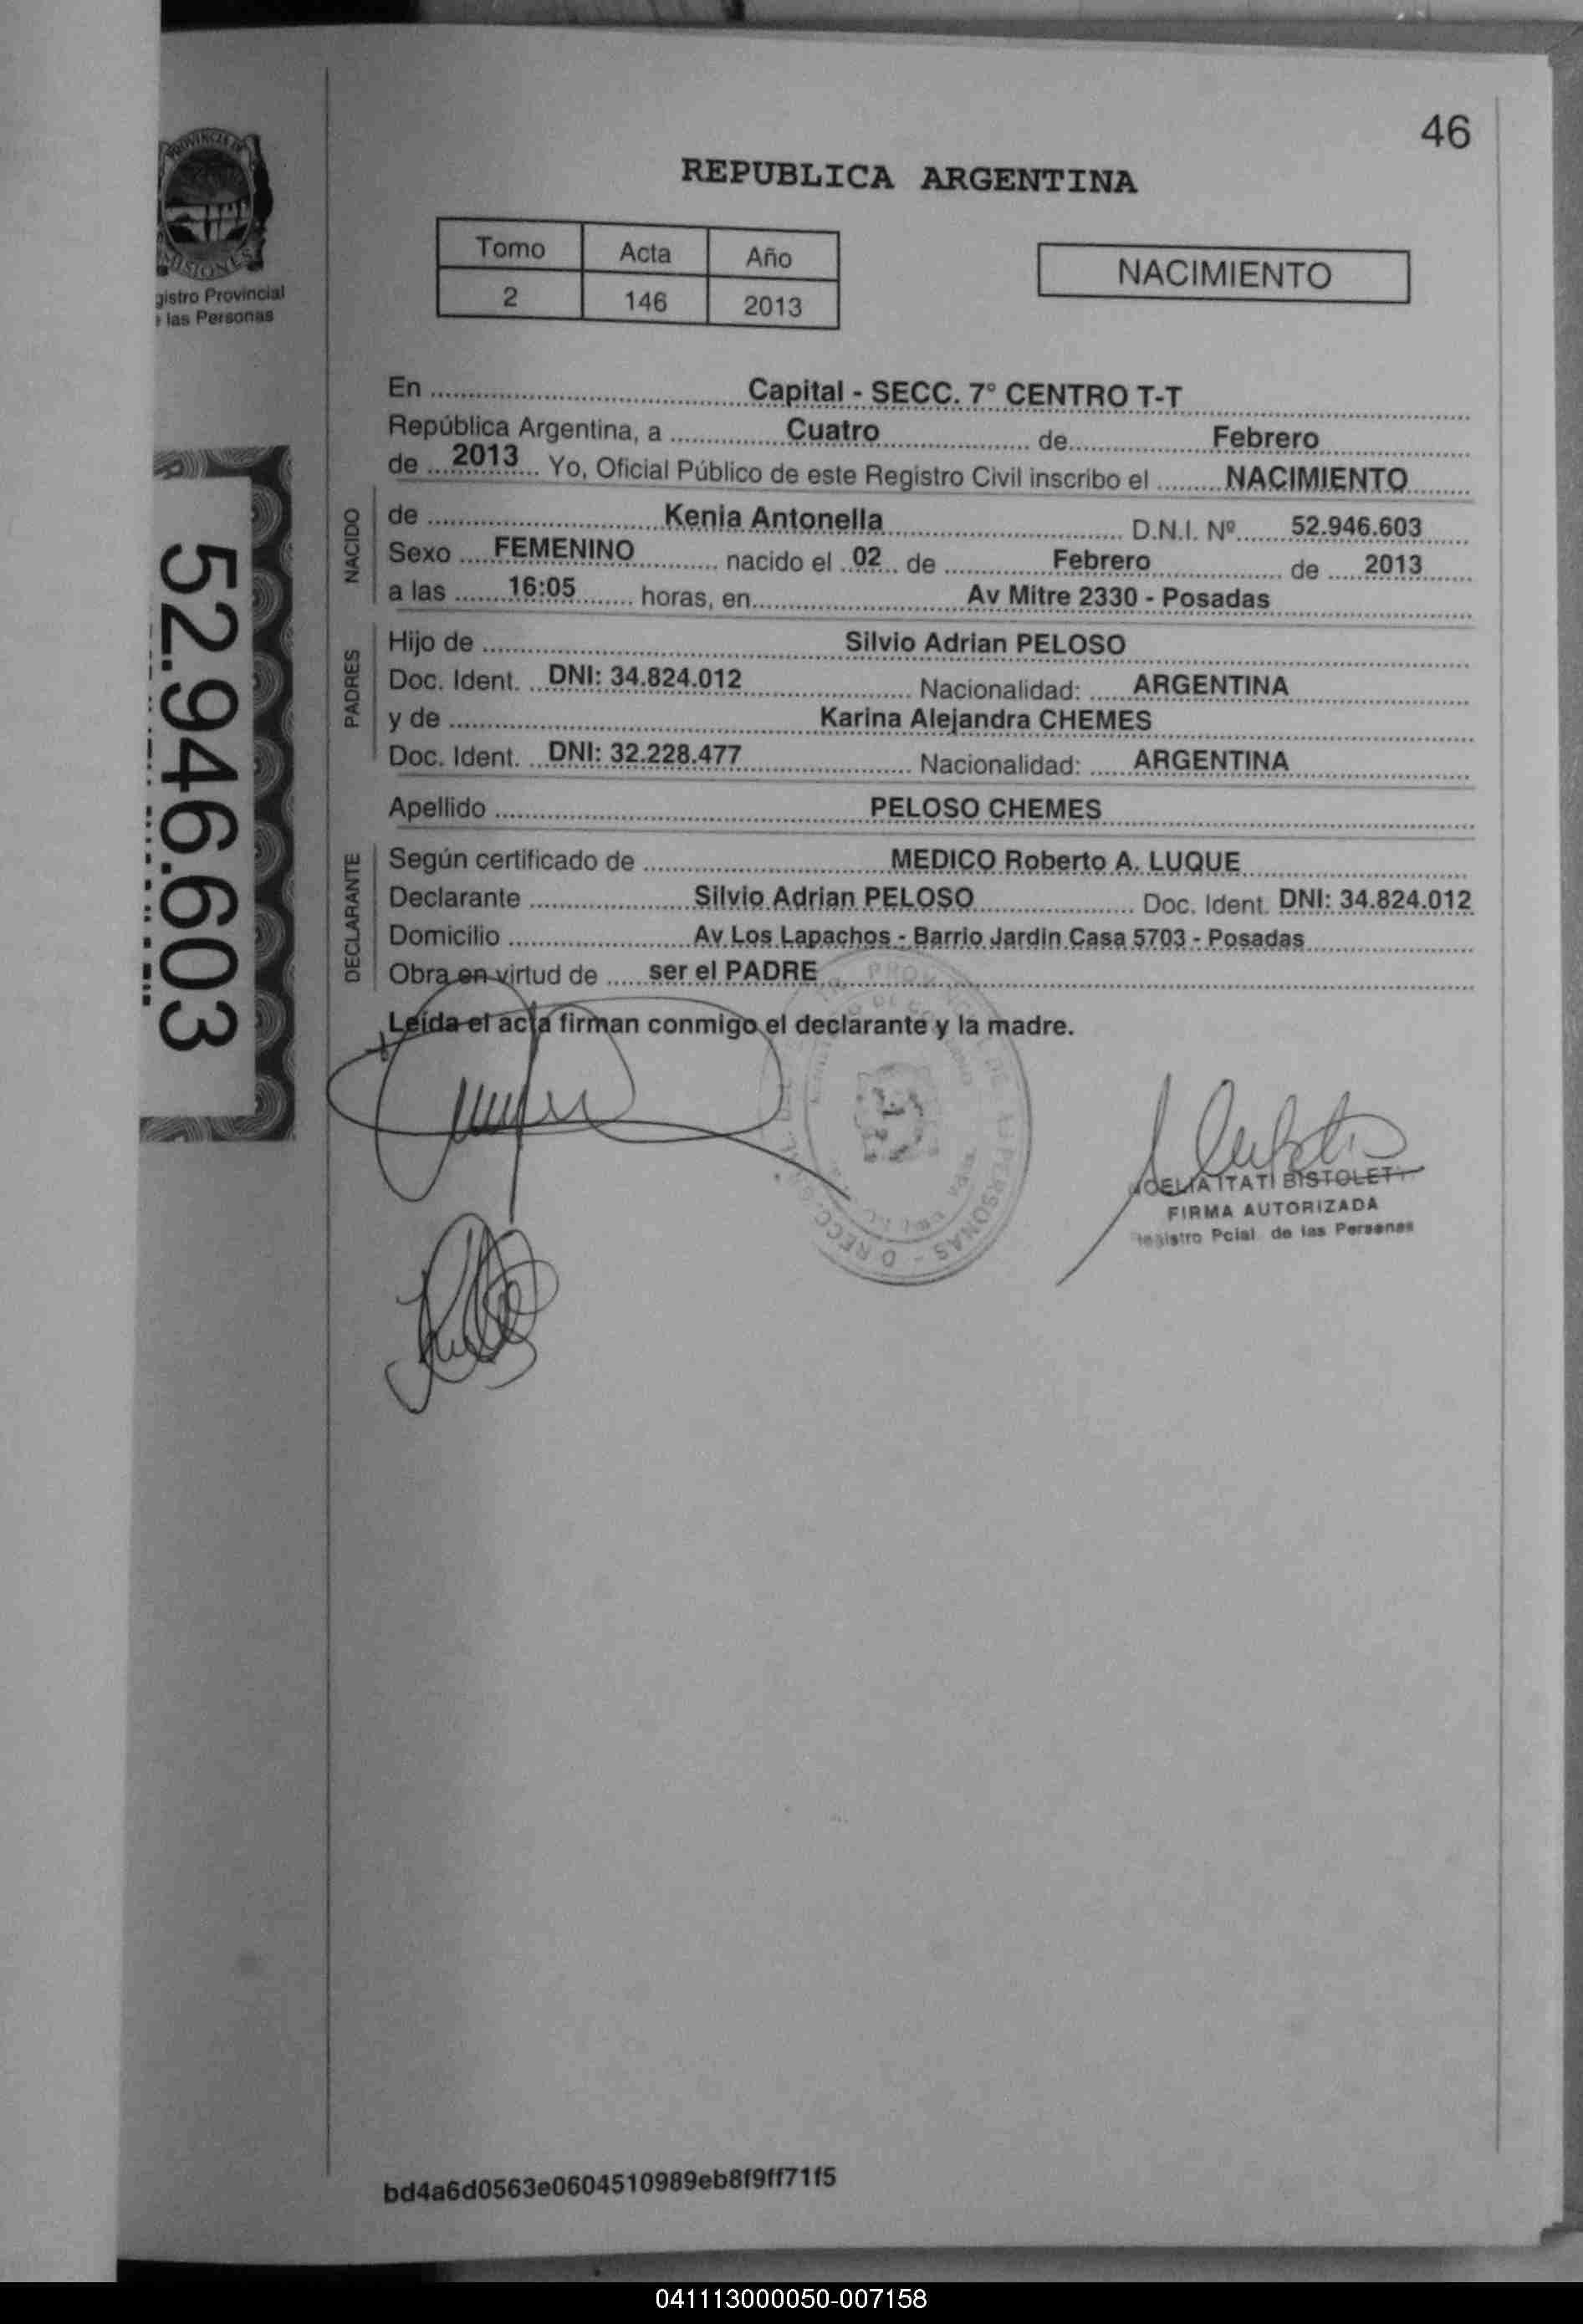 46
PROVINCIA DE
MISIONES
gistro Provincial
las Personas
REPUBLICA ARGENTINA
Tomo Acta Año
2 146 2013
NACIMIENTO
En Capital - SECC. 7° CENTRO T-T
República Argentina, a Cuatro de Febrero
de 2013 Yo, Oficial Público de este Registro Civil inscribo el NACIMIENTO
NACIDO
de Kenia Antonella D.N.I. Nº 52.946.603
Sexo FEMENINO nacido el 02 de Febrero de 2013
a las 16:05 horas, en Av Mitre 2330 - Posadas
PADRES
Hijo de Silvio Adrian PELOSO
Doc. Ident. DNI: 34.824.012 Nacionalidad: ARGENTINA
y de Karina Alejandra CHEMES
Doc. Ident. DNI: 32.228.477 Nacionalidad: ARGENTINA
Apellido PELOSO CHEMES
DECLARANTE
Según certificado de MEDICO Roberto A. LUQUE
Declarante Silvio Adrian PELOSO Doc. Ident. DNI: 34.824.012
Domicilio Av Los Lapachos - Barrio Jardin Casa 5703 - Posadas
Obra en virtud de ser el PADRE
Leída el acta firman conmigo el declarante y la madre.
52.946.603
ITATI BISTOLET
FIRMA AUTORIZADA
Registro Pcial de las Personas
bd4a6d0563e0604510989eb8f9ff71f5
041113000050-007158